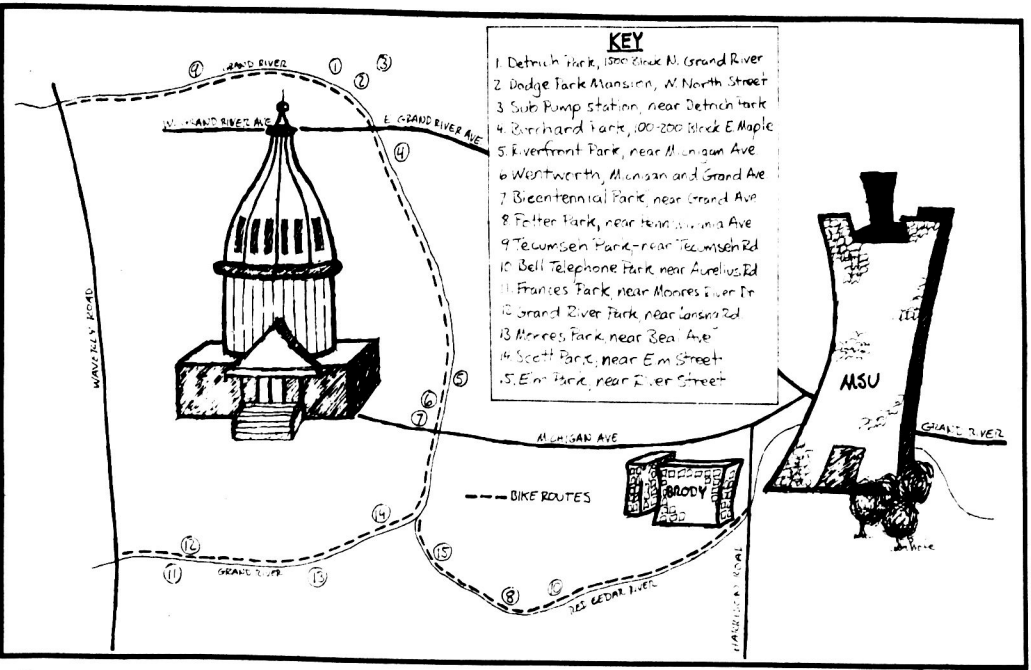 KEY
1. Detrich Park, 1500 Block N. Grand River
2 Dodge Park Mansion, N. North Street
3 Sub Pump station, near Detrich Park
4. Burchard Park, 100-200 Block E. Maple
5. Riverfront Park, near Michigan Ave
6 Wentworth, Michigan and Grand Ave
7 Bicentennial Park, near Grand Ave
8 Potter Park, near Pennsylvania Ave
9 Tecumseh Park-near Tecumseh Rd
10 Bell Telephone Park near Aurelius Rd
11. Frances Park, near Moores River Dr
12 Grand River Park, near Lansing Rd
13 Moores Park, near Beal Ave
14. Scott Park, near Elm Street
15. Elm Park, near River Street
9
GRAND RIVER
1
2
3
W. GRAND RIVER AVE
E. GRAND RIVER AVE
4
WAVERLY ROAD
5
6
7
MICHIGAN AVE
MSU
GRAND RIVER
BRODY
BIKE ROUTES
14
12
15
11
GRAND RIVER
13
8
10
RED CEDAR RIVER
HARRISON ROAD